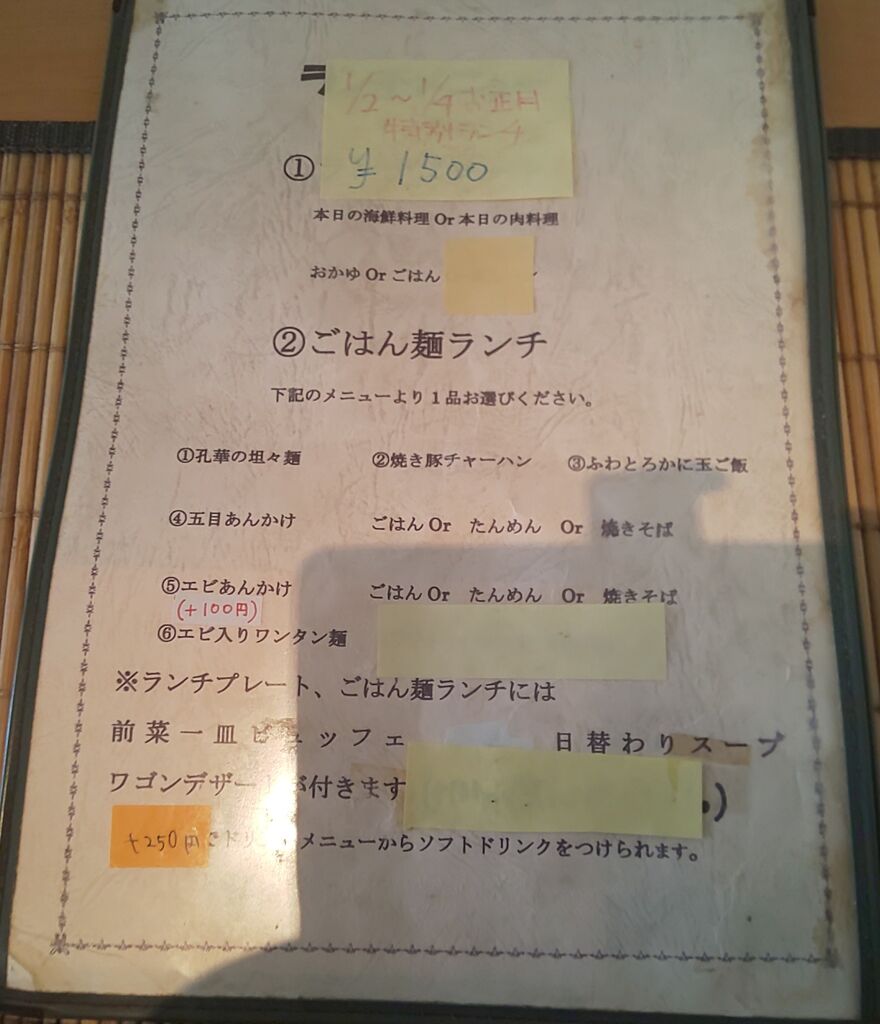 1/2～1/4 お正月
特別ランチ
① ¥1500
本日の海鮮料理 Or 本日の肉料理
おかゆ Or ごはん
②ごはん麺ランチ
下記のメニューより1品お選びください。
①孔華の坦々麺 ②焼き豚チャーハン ③ふわとろかに玉ご飯
④五目あんかけ ごはん Or たんめん Or 焼きそば
⑤エビあんかけ ごはん Or たんめん Or 焼きそば
(+100円)
⑥エビ入りワンタン麺
※ランチプレート、ごはん麺ランチには
前菜一皿ビュッフェ 日替わりスープ
ワゴンデザートが付きます
+250円でドリンクメニューからソフトドリンクをつけられます。